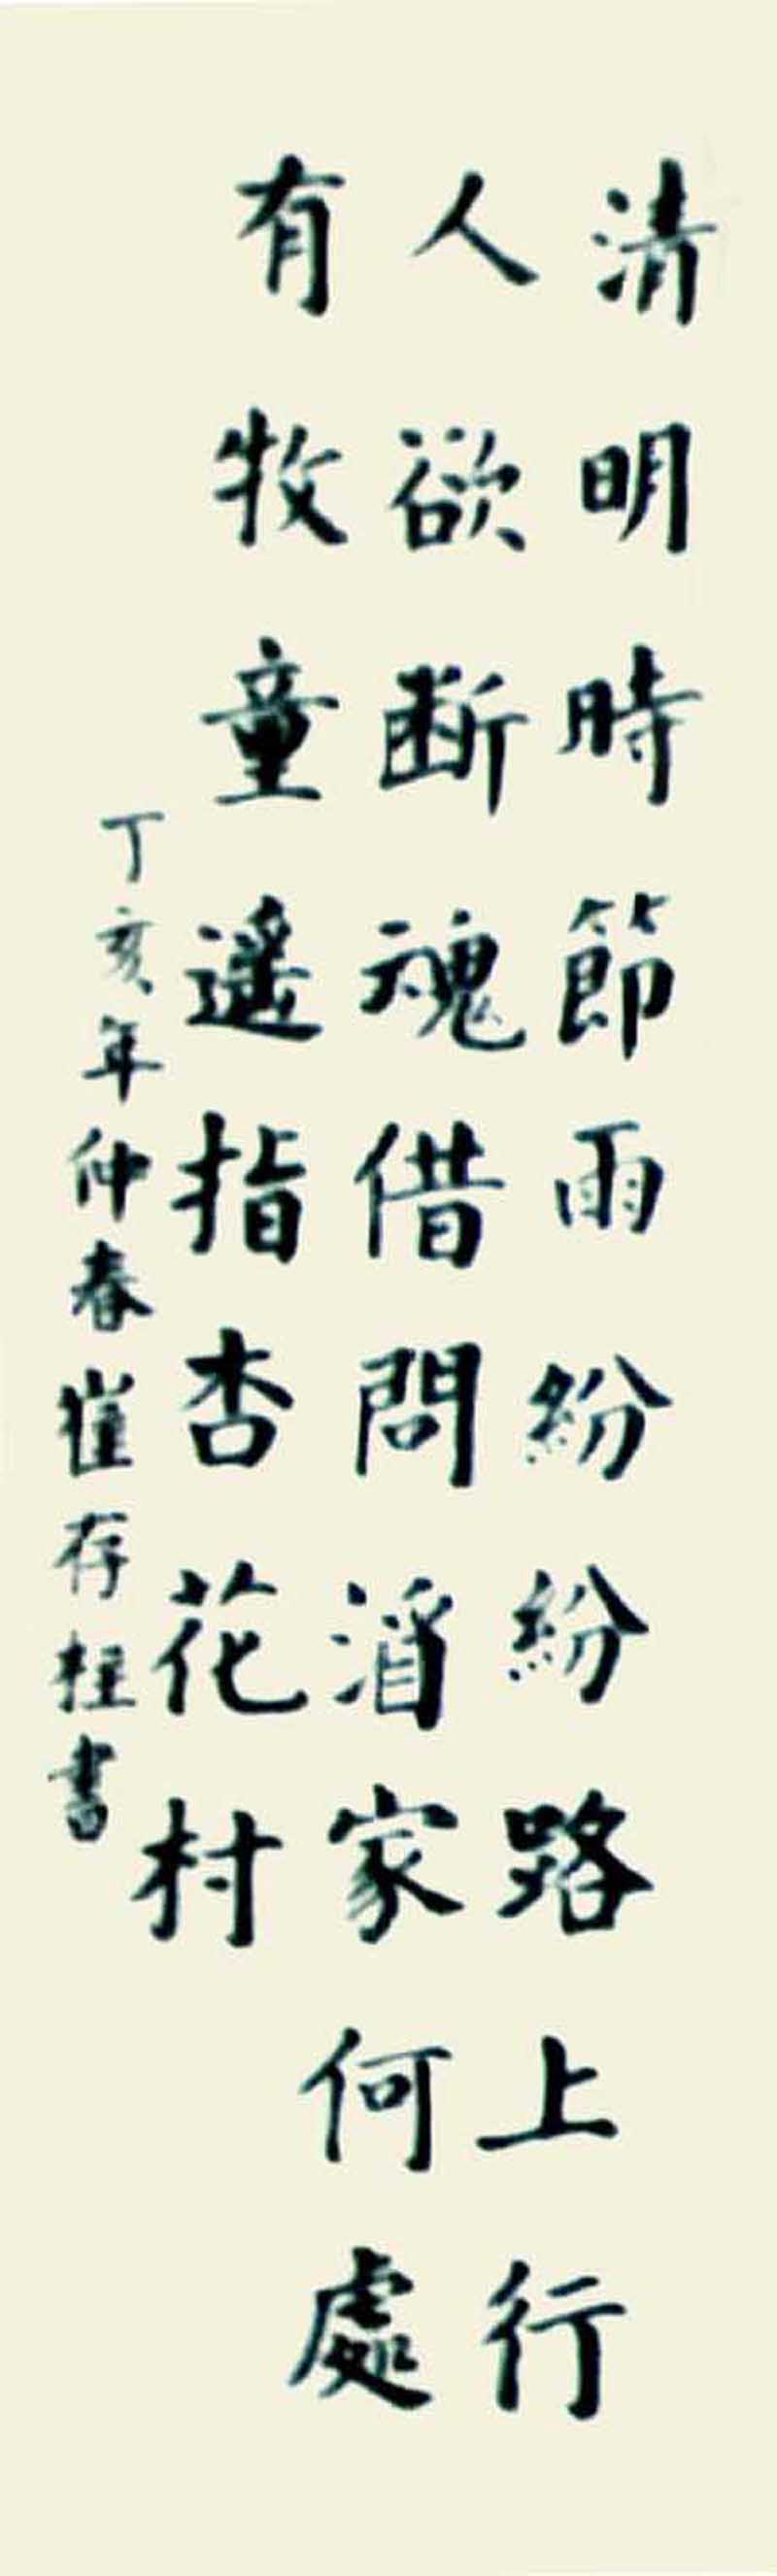 清明時節雨紛紛路上行
人欲断魂借問酒家何處
有牧童遥指杏花村
丁亥年仲春崔存柱書